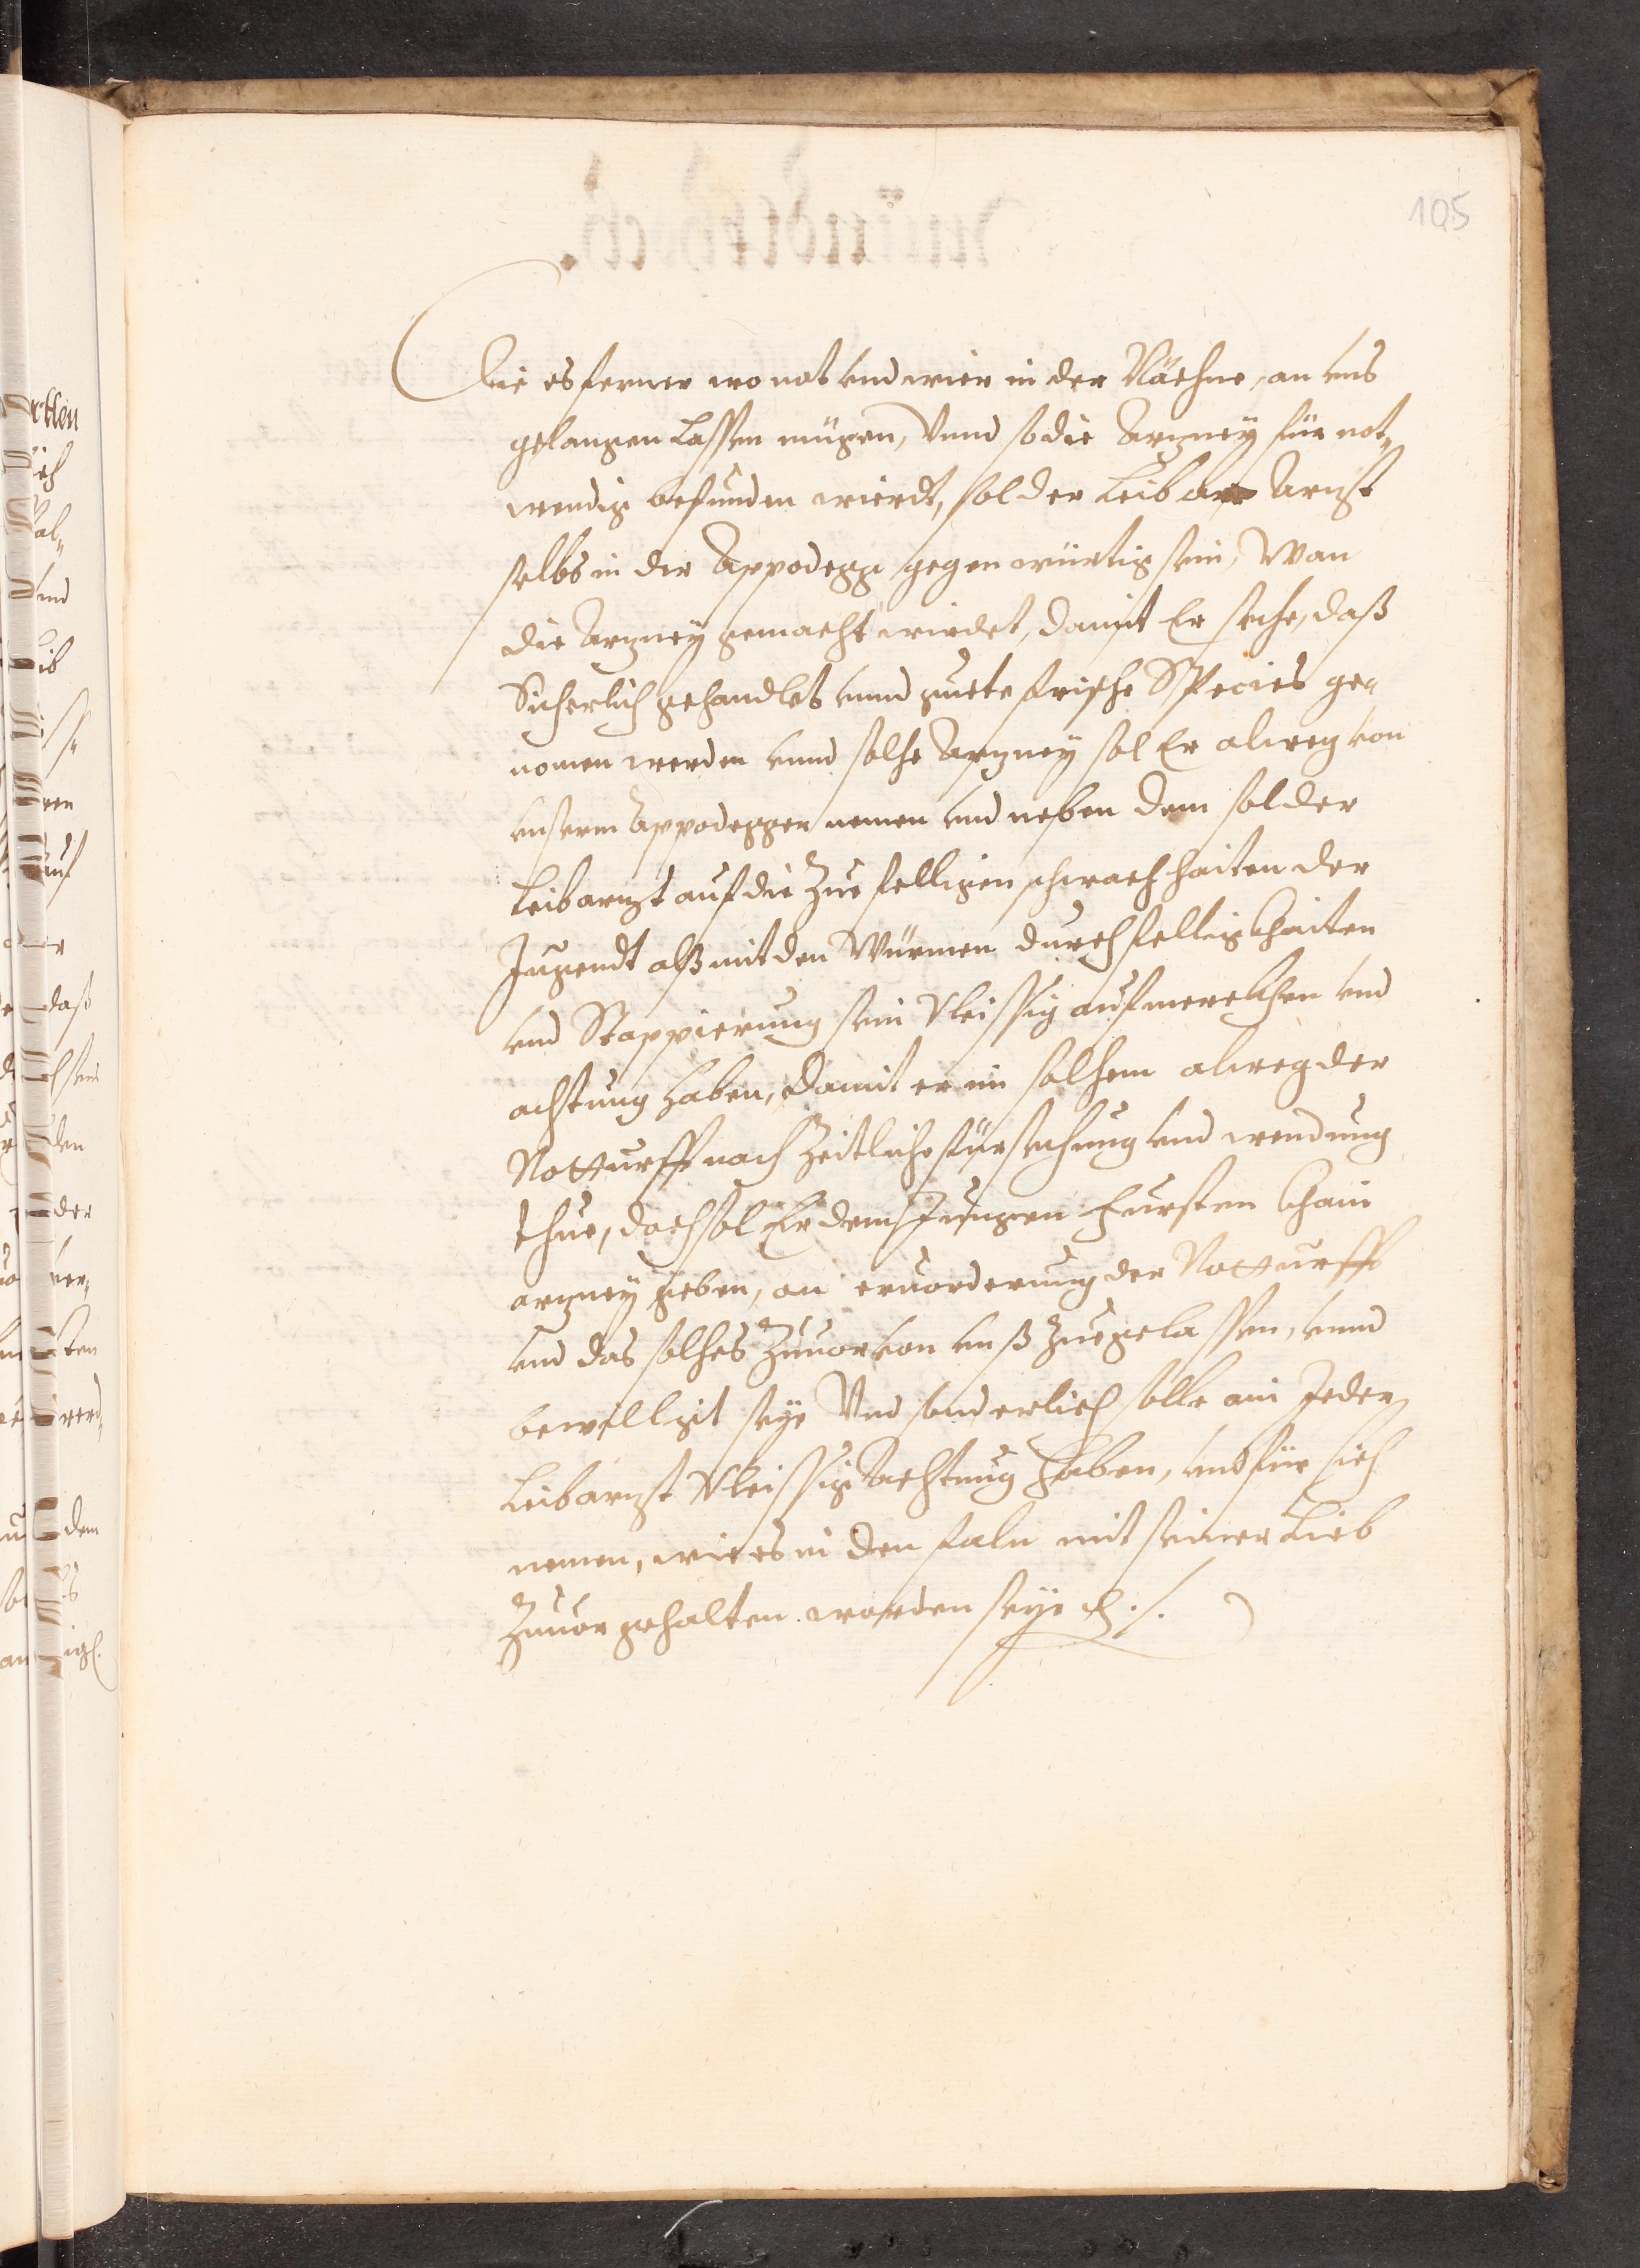 105
Die es ferner wo not vnd wier in der Nächne, an vns
gelangen Lassen mügen, Vnnd so die Arzney für not„
wendig befunden wierdt, sol der Leib Arzt
selbs in der Appodegg gegenwürtig sein, Wan
die Arzney gemacht wirdet, damit Er sehe, daß
Sicherlich gehandlet vnnd guete frische SPecies ge„
nomen werden vnnd solhe Arzney sol Er alweg von
vnserm Appodegger nemen vnd neben dem sol der
Leibarzt auf die Zuefelligen schwachhaiten der
Jugendt alß mit den Würmen durchfelligkhaiten
vnd Stappierung sein Vleissig aufmerckhen vnd
achtung haben, damit er in solhem alweg der
Notturfft nach Zeitliche fürsehung vnd wendung
thue, doch sol Er dem Jungen Fürsten khain
arzney geben, an eruorderung der Notturfft
vnd das solhes Zuuor von vnß Zuegelassen, vnnd
bewilligt seye Vnd sonderlich solle ain Jeder
Leibarzt Vleissige Achtung haben, vnd für sich
nemen, wie es in den faln mit seiner Lieb
Zuuor gehalten worden seye ./.